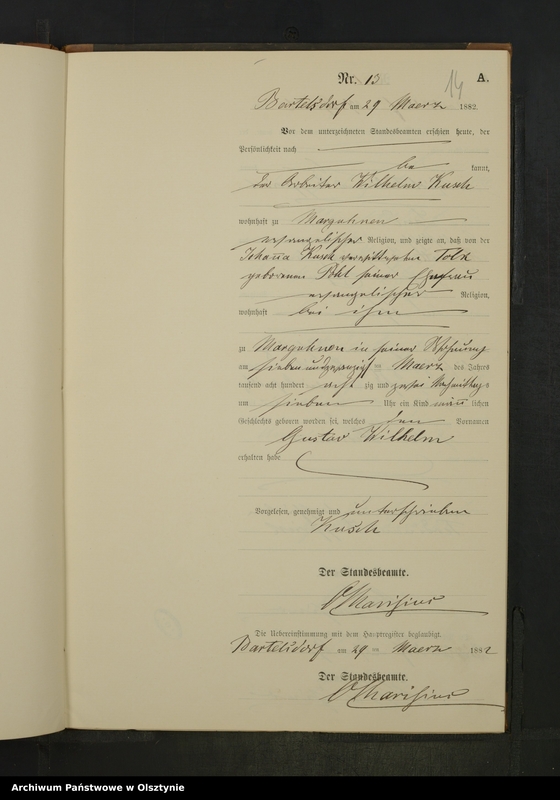 Nr. 13
14
A.
Bartelsdorf am 29 Maerz 1882.
Vor dem unterzeichneten Standesbeamten erschien heute, der
Persönlichkeit nach
be kannt,
der Arbeiter Wilhelm Kusch
wohnhaft zu Margohnen
evangelischer Religion, und zeigte an, daß von der
Johanna Kusch verwittweten Tolk
geborenen Pohl seiner Ehefrau
evangelischer Religion,
wohnhaft bei ihm
zu Margohnen in seiner Wohnung
am sieben und zwanzig ten Maerz des Jahres
tausend acht hundert acht zig und zwei Nachmittags
um sieben Uhr ein Kind männ lichen
Geschlechts geboren worden sei, welches den Vornamen
Gustav Wilhelm
erhalten habe
Vorgelesen, genehmigt und unterschrieben
Kusch
Der Standesbeamte.
Die Uebereinstimmung mit dem Hauptregister beglaubigt.
Bartelsdorf am 29 ten Maerz 1882
Der Standesbeamte.
Archiwum Państwowe w Olsztynie